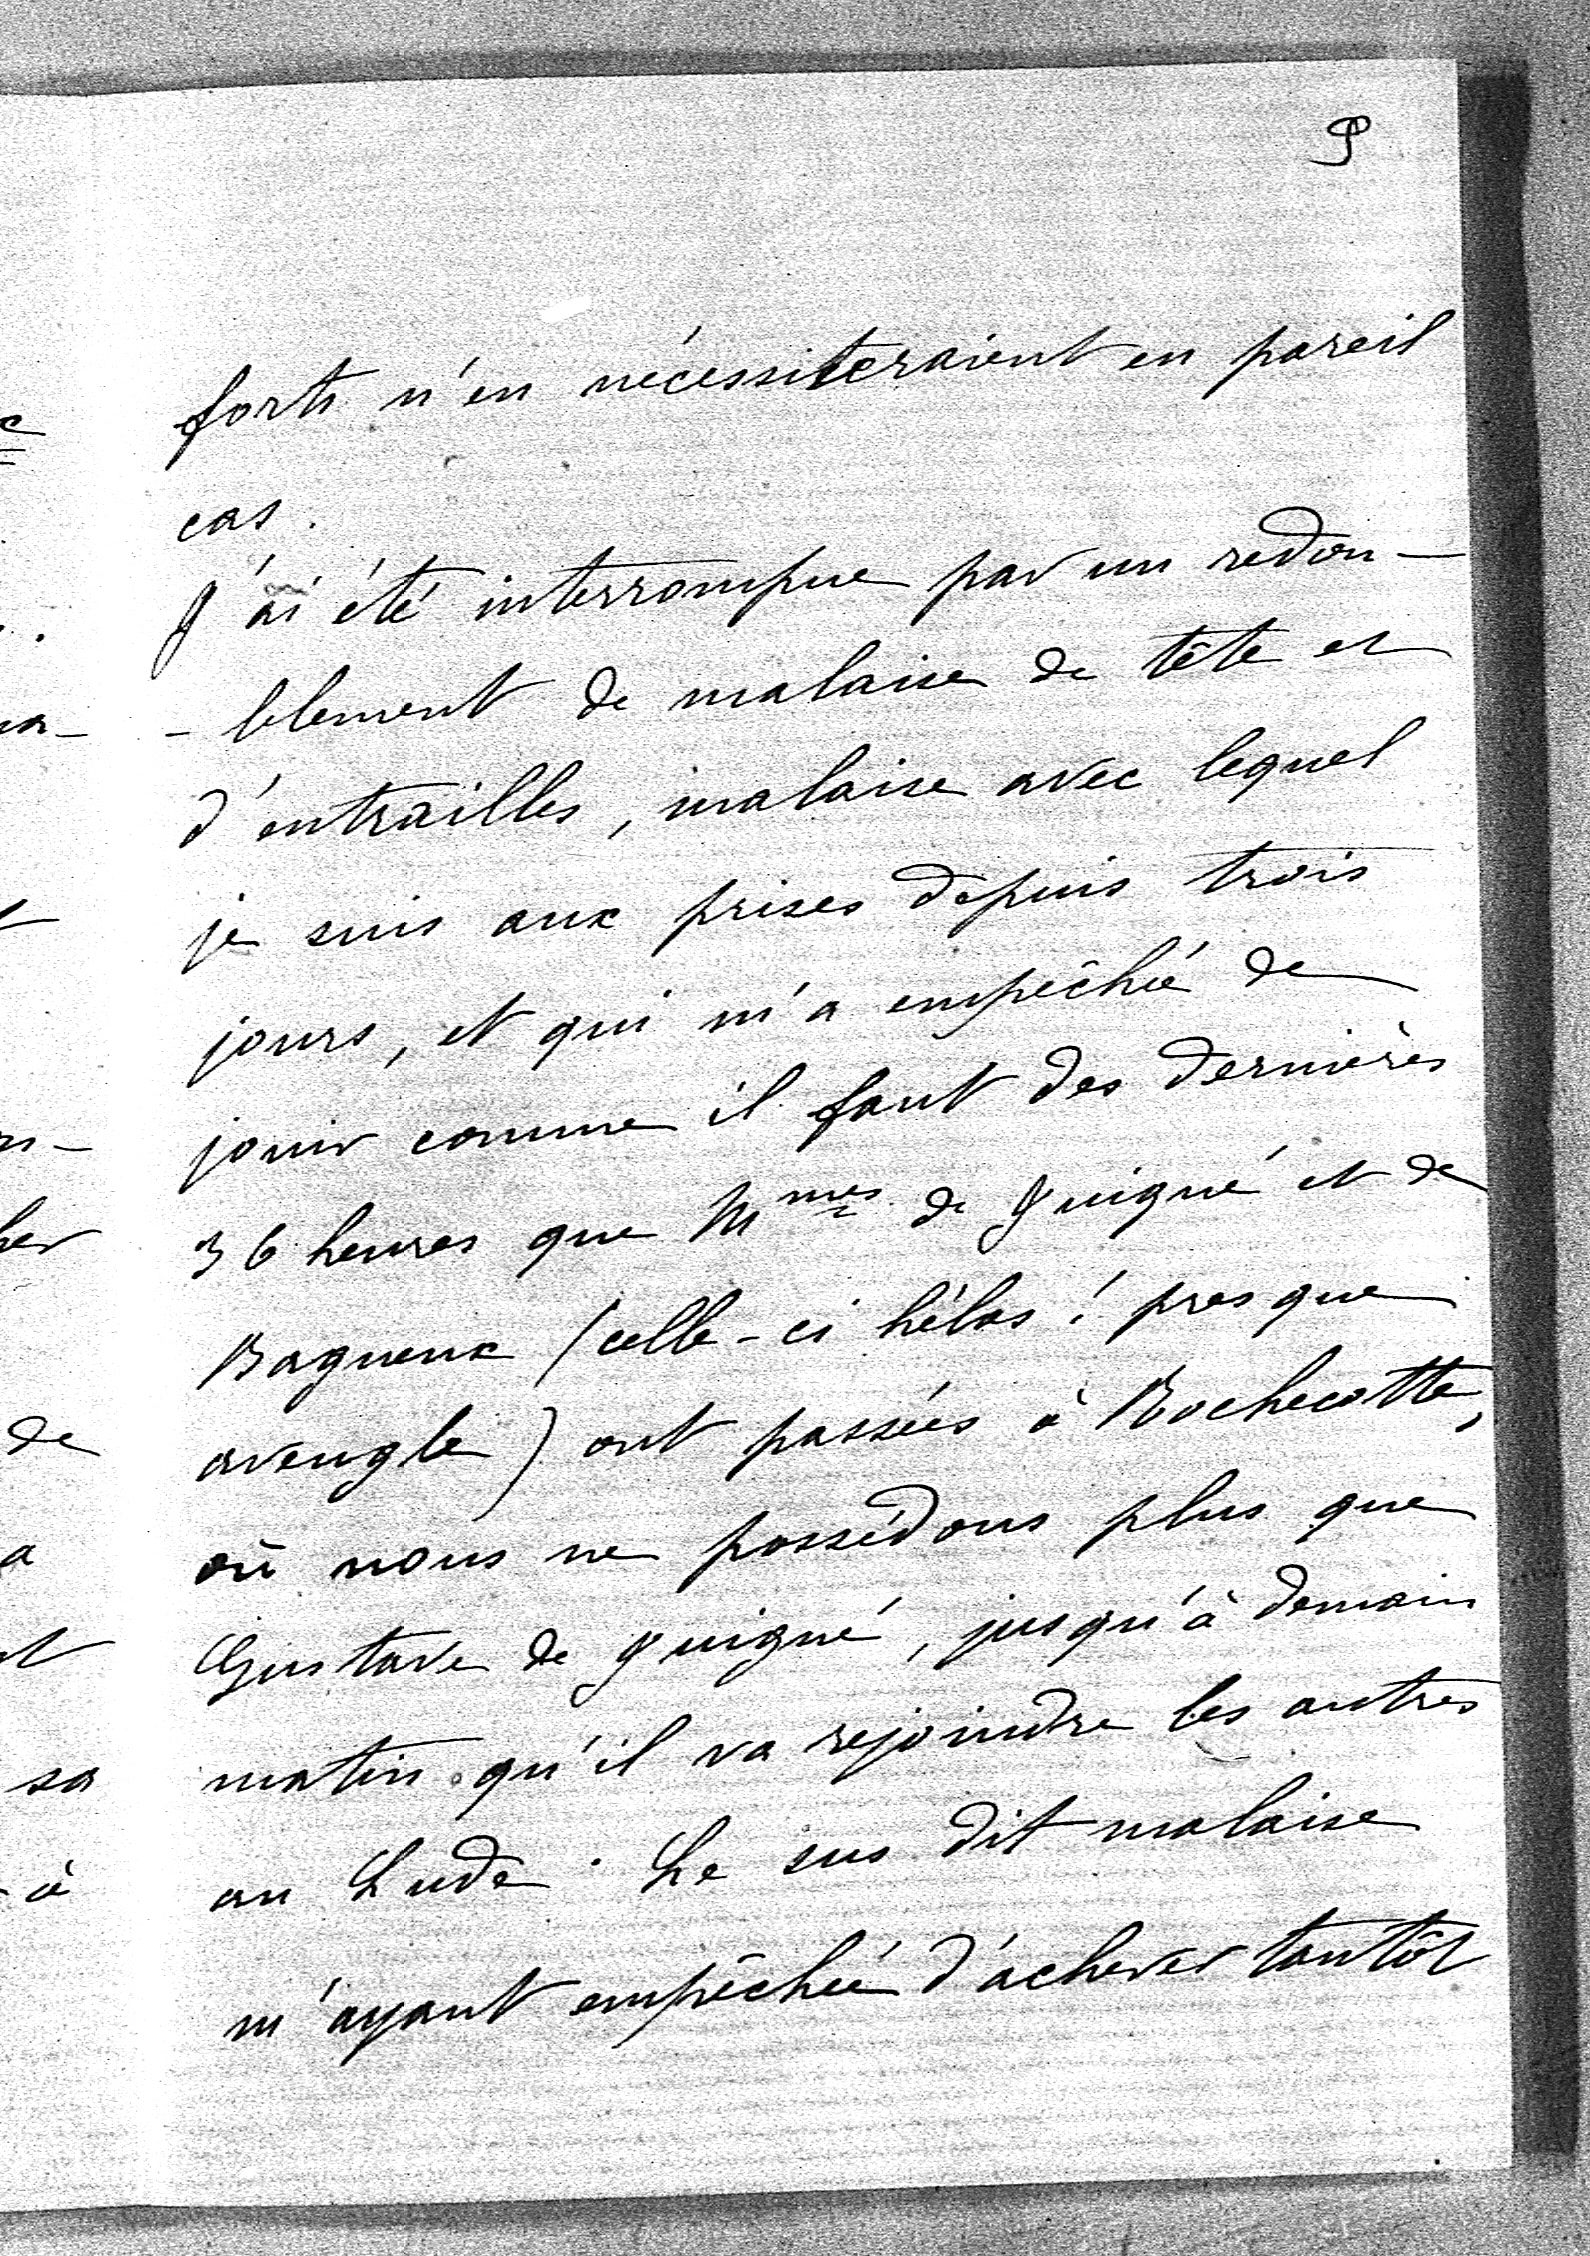 9
forts n'en nécessiteraient en pareil
cas.
J'ai été interrompue par un redou-
-blement de malaise de tête et
d'entrailles, malaise avec lequel
je suis aux prises depuis trois
jours, et qui m'a empêchée de
jouir comme il faut des dernières
36 heures que Mmes de Juigné et de
Bagneux (celle-ci hélas! presque
aveugle) ont passées à Rochecotte,
où nous ne possédons plus que
Gustave de Juigné, jusqu'à demain
matin qu'il va rejoindre les autres
au Lude. Le sus dit malaise
m'ayant empêchée d'achever tantôt